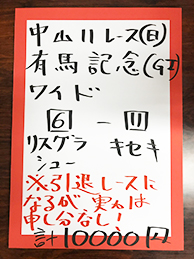 中山11レース(日)
有馬記念(GI)
ワイド
6 - 11
リスグラシュー キセキ
※引退レースに
なるが、実力は
申し分なし!
計10000円